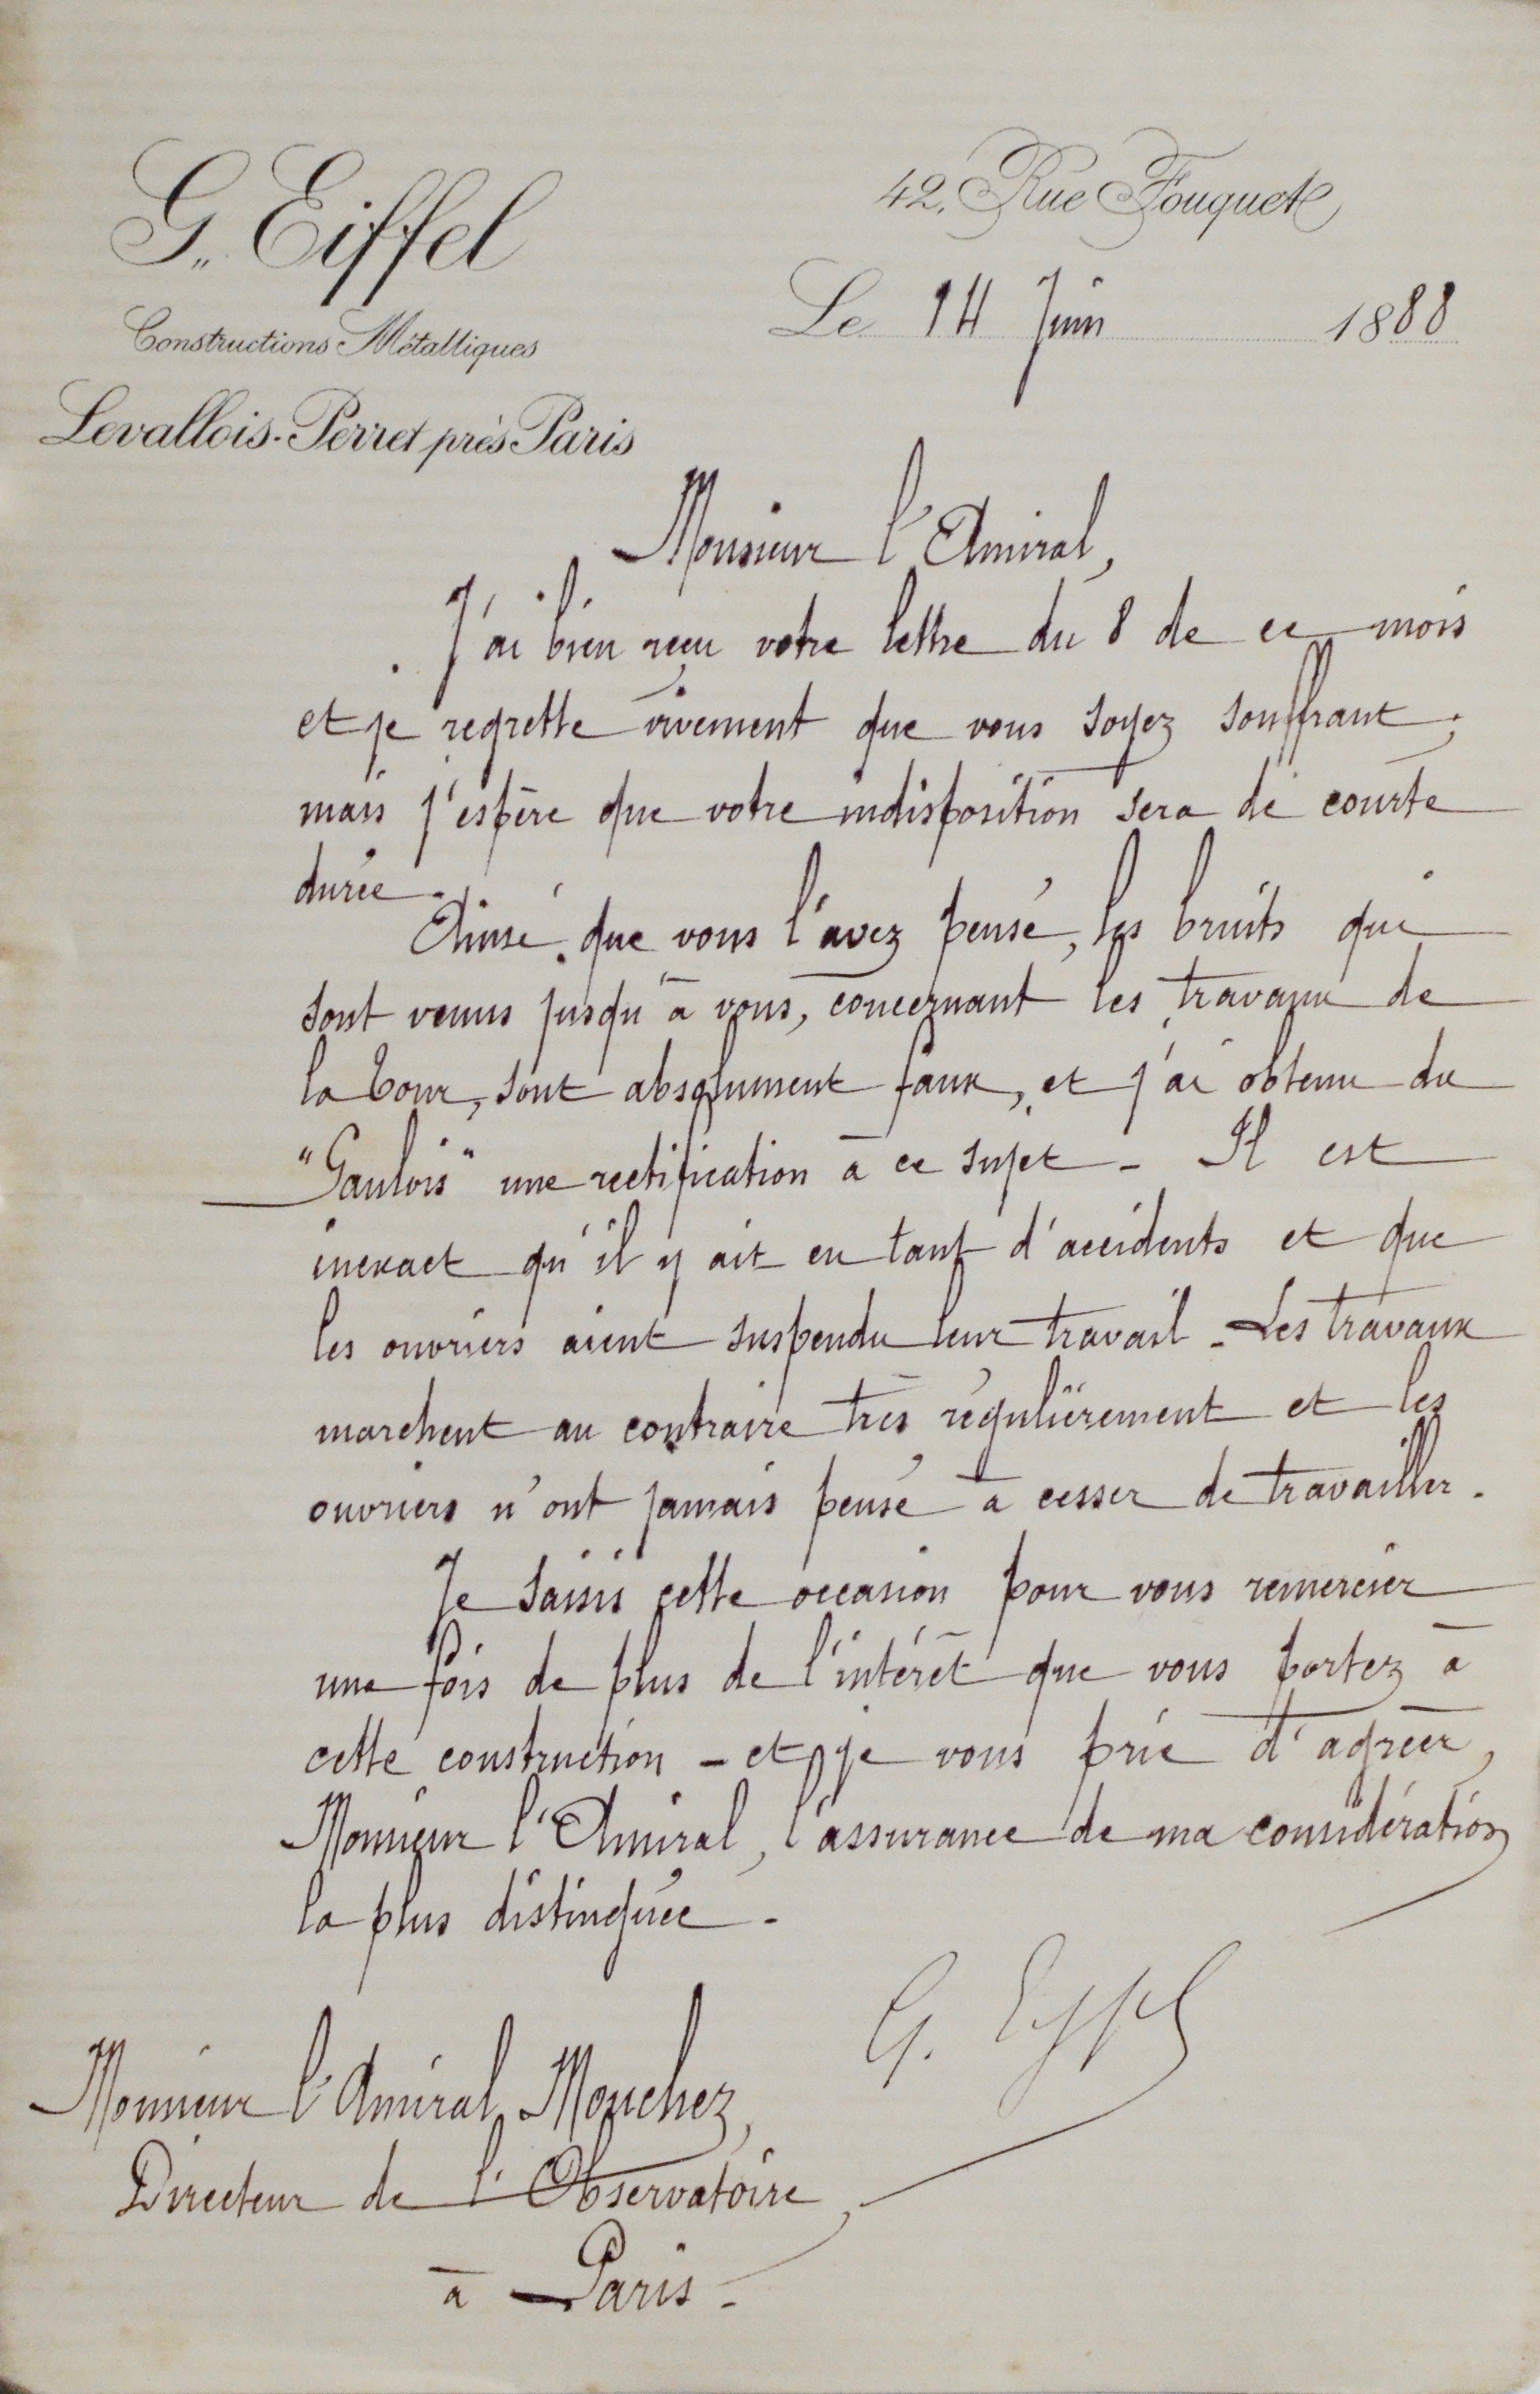 G. Eiffel
Constructions Métalliques
Levallois-Perret près Paris
42, Rue Fouquet
Le 14 Juin 1888
Monsieur l'Amiral,
J'ai bien reçu votre lettre du 8 de ce mois
et je regrette vivement que vous soyez souffrant;
mais j'espère que votre indisposition sera de courte
durée.
Ainsi que vous l'avez pensé, les bruits qui
sont venus jusqu'à vous, concernant les travaux de
la Tour, sont absolument faux, et j'ai obtenu du
"Gaulois" une rectification à ce sujet - Il est
inexact qu'il y ait eu tant d'accidents et que
les ouvriers aient suspendu leur travail - Les travaux
marchent au contraire très régulièrement et les
ouvriers n'ont jamais pensé à cesser de travailler.
Je saisis cette occasion pour vous remercier
une fois de plus de l'intérêt que vous portez à
cette construction - et je vous prie d'agréer,
Monsieur l'Amiral, l'assurance de ma considération
la plus distinguée -
G. Eiffel
Monsieur l'Amiral Mouchez,
Directeur de l'Observatoire,
à Paris -